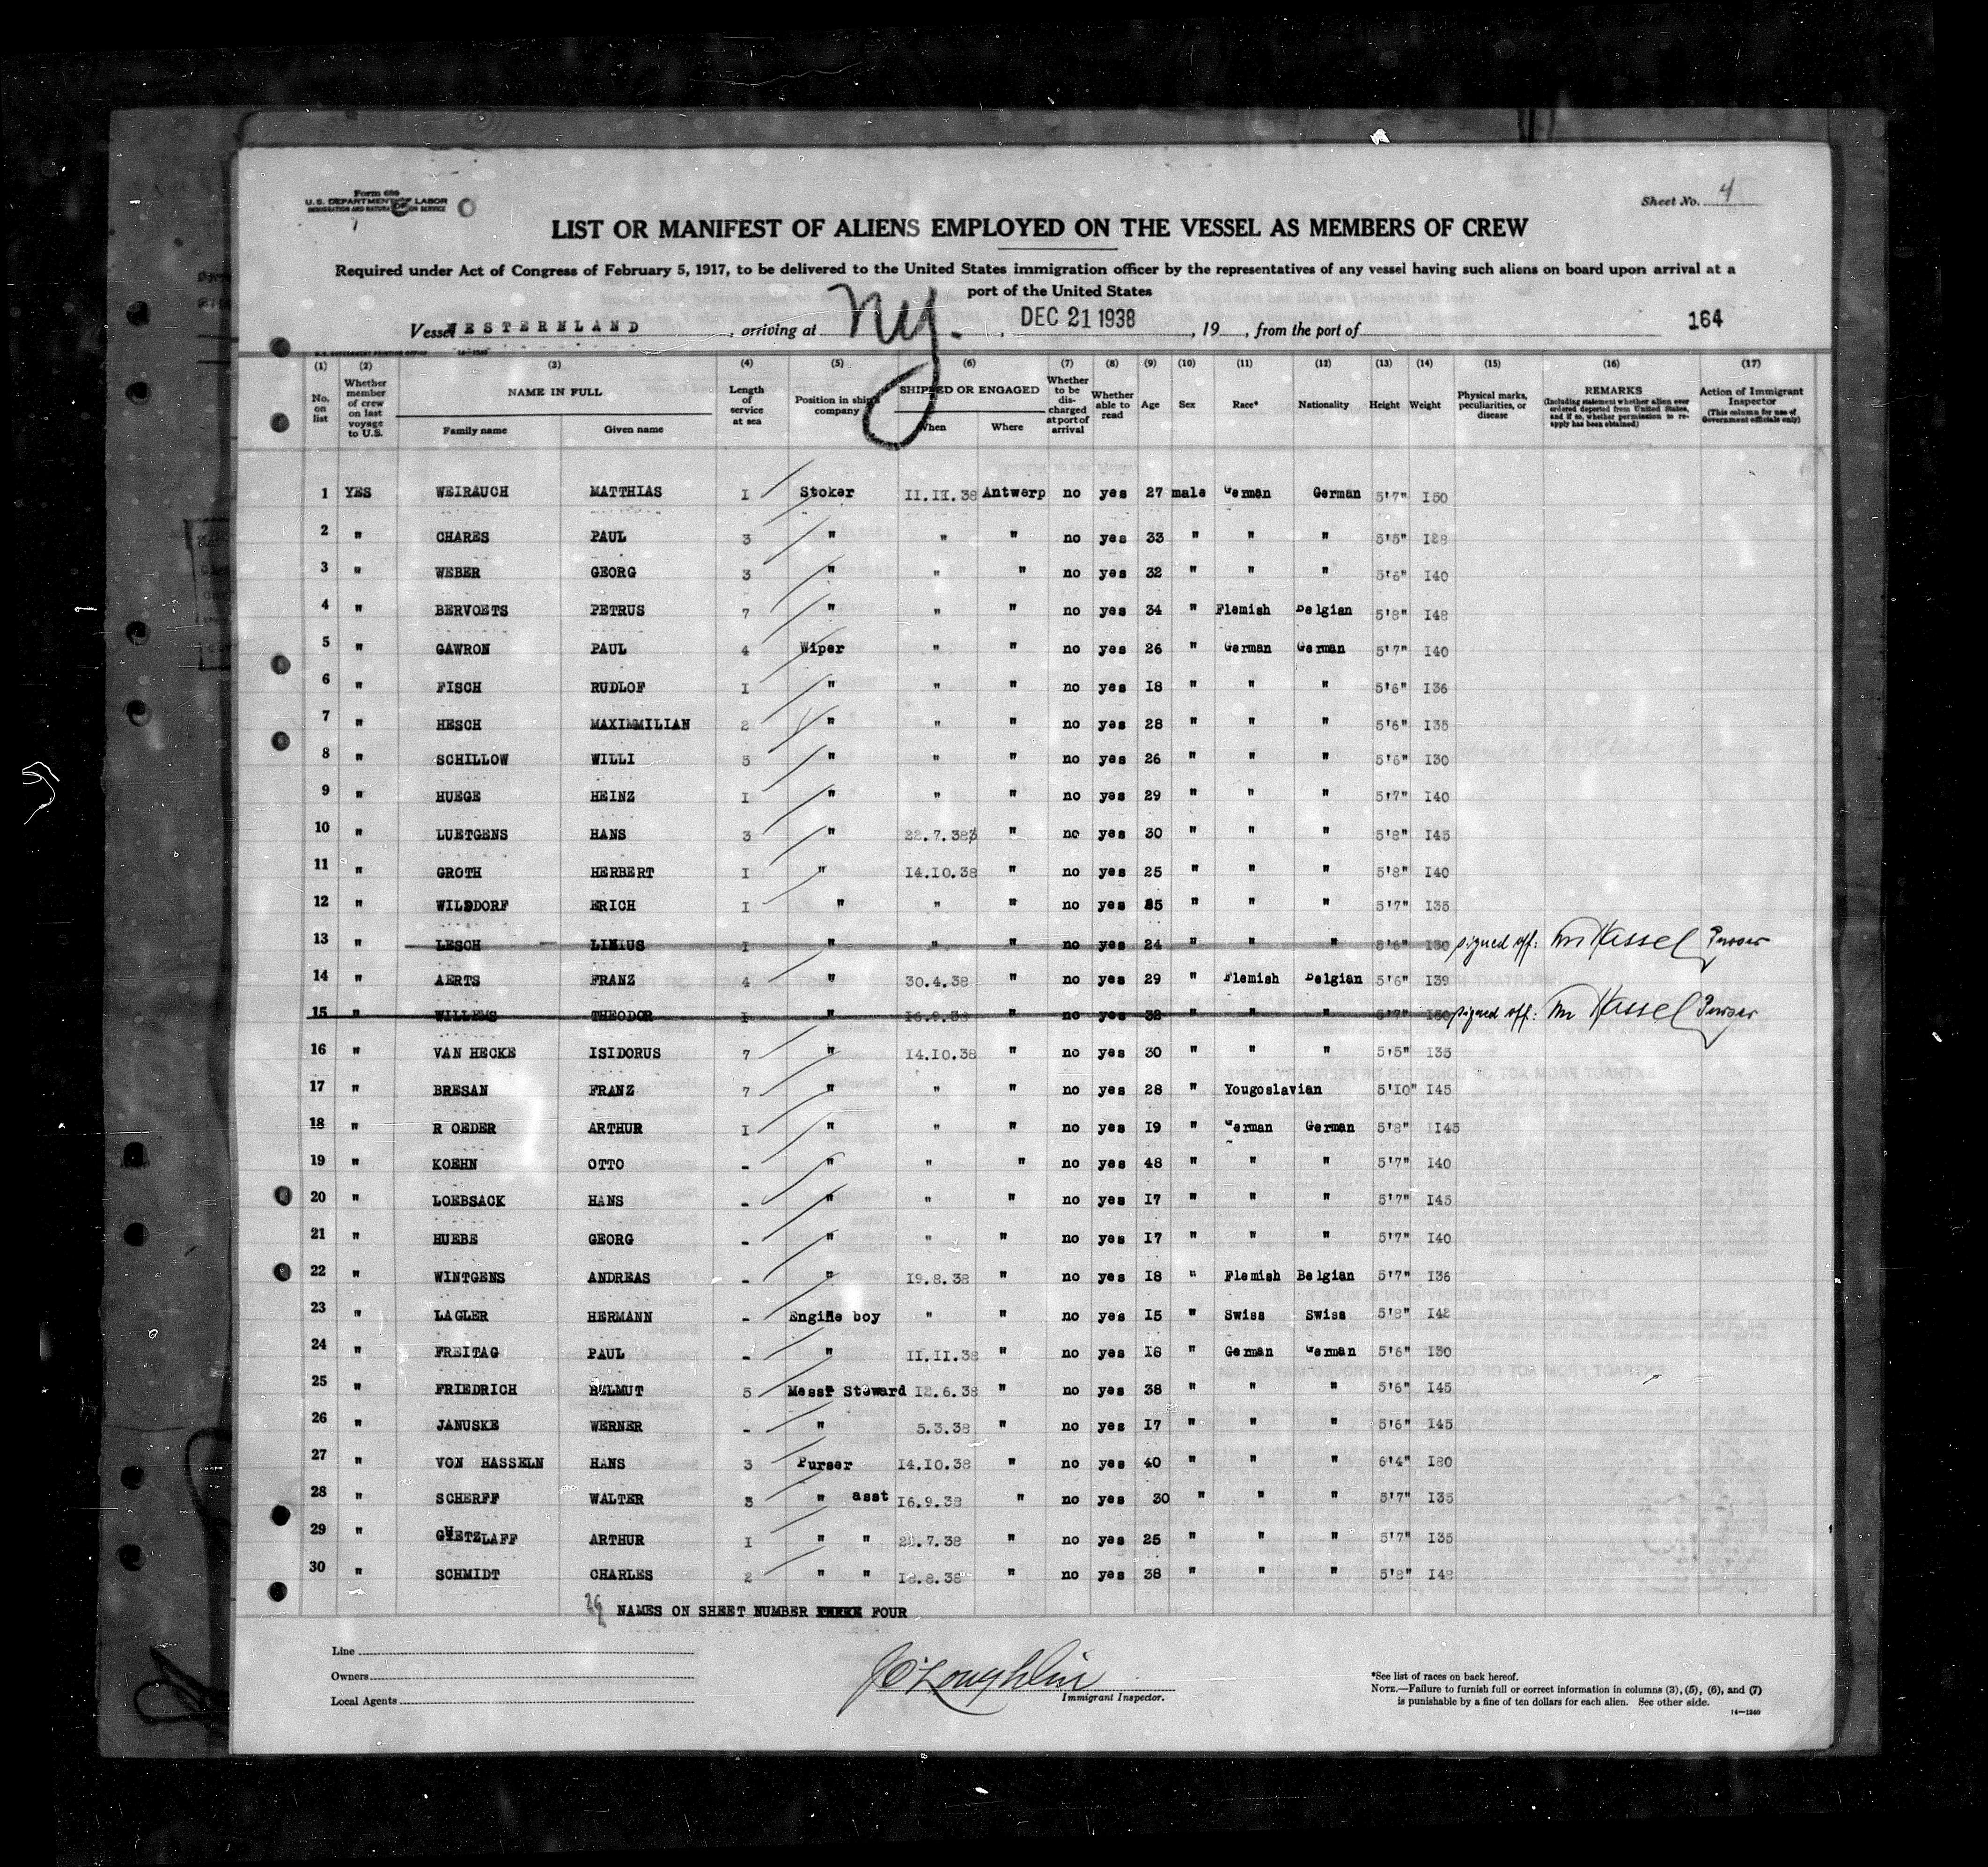 Form 689
U. S. DEPARTMENT OF LABOR
IMMIGRATION AND NATURALIZATION SERVICE
Sheet No. 4
LIST OR MANIFEST OF ALIENS EMPLOYED ON THE VESSEL AS MEMBERS OF CREW
Required under Act of Congress of February 5, 1917, to be delivered to the United States immigration officer by the representatives of any vessel having such aliens on board upon arrival at a
port of the United States
Vessel WESTERNLAND, arriving at Ny., DEC 21 1938, 19, from the port of 164
(1) (2) (3) (4) (5) (6) (7) (8) (9) (10) (11) (12) (13) (14) (15) (16) (17)
No. on list
Whether member of crew on last voyage to U.S.
NAME IN FULL
Family name
Given name
Length of service at sea
Position in ship's company
SHIPPED OR ENGAGED
When
Where
Whether to be discharged at port of arrival
Whether able to read
Age
Sex
Race*
Nationality
Height
Weight
Physical marks, peculiarities, or disease
REMARKS
(Including statement whether alien ever ordered deported from United States, and if so, whether permission to reapply has been obtained)
Action of Immigrant Inspector
(This column for use of Government officials only)
1 YES WEIRAUCH MATTHIAS I Stoker II.II.38 Antwerp no yes 27 male German German 5'7" I50
2 " CHARES PAUL 3 " " " no yes 33 " " " 5'5" I28
3 " WEBER GEORG 3 " " " no yes 32 " " " 5'6" I40
4 " BERVOETS PETRUS 7 " " " no yes 34 " Flemish Belgian 5'8" I48
5 " GAWRON PAUL 4 Wiper " " no yes 26 " German German 5'7" I40
6 " FISCH RUDLOF I " " " no yes I8 " " " 5'6" I36
7 " HESCH MAXIMMILIAN 2 " " " no yes 28 " " " 5'6" I35
8 " SCHILLOW WILLI 5 " " " no yes 26 " " " 5'6" I30
9 " HUEGE HEINZ I " " " no yes 29 " " " 5'7" I40
10 " LUETGENS HANS 3 " 22.7.38 " no yes 30 " " " 5'8" I45
11 " GROTH HERBERT I " I4.IO.38 " no yes 25 " " " 5'8" I40
12 " WILDDORF ERICH I " " " no yes 35 " " " 5'7" I35
13 " LESCH LINIUS I " " " no yes 24 " " " 5'6" I30 signed off: Hassel Purser
14 " AERTS FRANZ 4 " 30.4.38 " no yes 29 " Flemish Belgian 5'6" I39
15 " WILLEMS THEODOR I " I6.9.38 " no yes 32 " " " 5'7" I50 signed off: Hassel Purser
16 " VAN HECKE ISIDORUS 7 " I4.IO.38 " no yes 30 " " " 5'5" I35
17 " BRESAN FRANZ 7 " " " no yes 28 " Yougoslavian 5'IO" I45
18 " R OEDER ARTHUR I " " " no yes I9 " German German 5'8" I145
19 " KOEHN OTTO - " " " no yes 48 " " " 5'7" I40
20 " LOEBSACK HANS - " " " no yes I7 " " " 5'7" I45
21 " HUEBE GEORG - " " " no yes I7 " " " 5'7" I40
22 " WINTGENS ANDREAS - " I9.8.38 " no yes I8 " Flemish Belgian 5'7" I36
23 " LAGLER HERMANN - Engine boy " " no yes I5 " Swiss Swiss 5'8" I42
24 " FREITAG PAUL - " II.II.38 " no yes I8 " German German 5'6" I30
25 " FRIEDRICH HELMUT 5 Messr Steward I2.6.38 " no yes 38 " " " 5'6" I45
26 " JANUSKE WERNER - " 5.3.38 " no yes I7 " " " 5'6" I45
27 " VON HASSELN HANS 3 Purser I4.IO.38 " no yes 40 " " " 6'4" I80
28 " SCHERFF WALTER 3 " asst I6.9.38 " no yes 30 " " " 5'7" I35
29 " GUETZLAFF ARTHUR I " " 22.7.38 " no yes 25 " " " 5'7" I35
30 " SCHMIDT CHARLES 2 " " I9.8.38 " no yes 38 " " " 5'8" I48
29 NAMES ON SHEET NUMBER THREE FOUR
Line
Owners
Local Agents
J O'Loughlin
Immigrant Inspector.
*See list of races on back hereof.
NOTE.—Failure to furnish full or correct information in columns (3), (5), (6), and (7)
is punishable by a fine of ten dollars for each alien. See other side.
14—1240